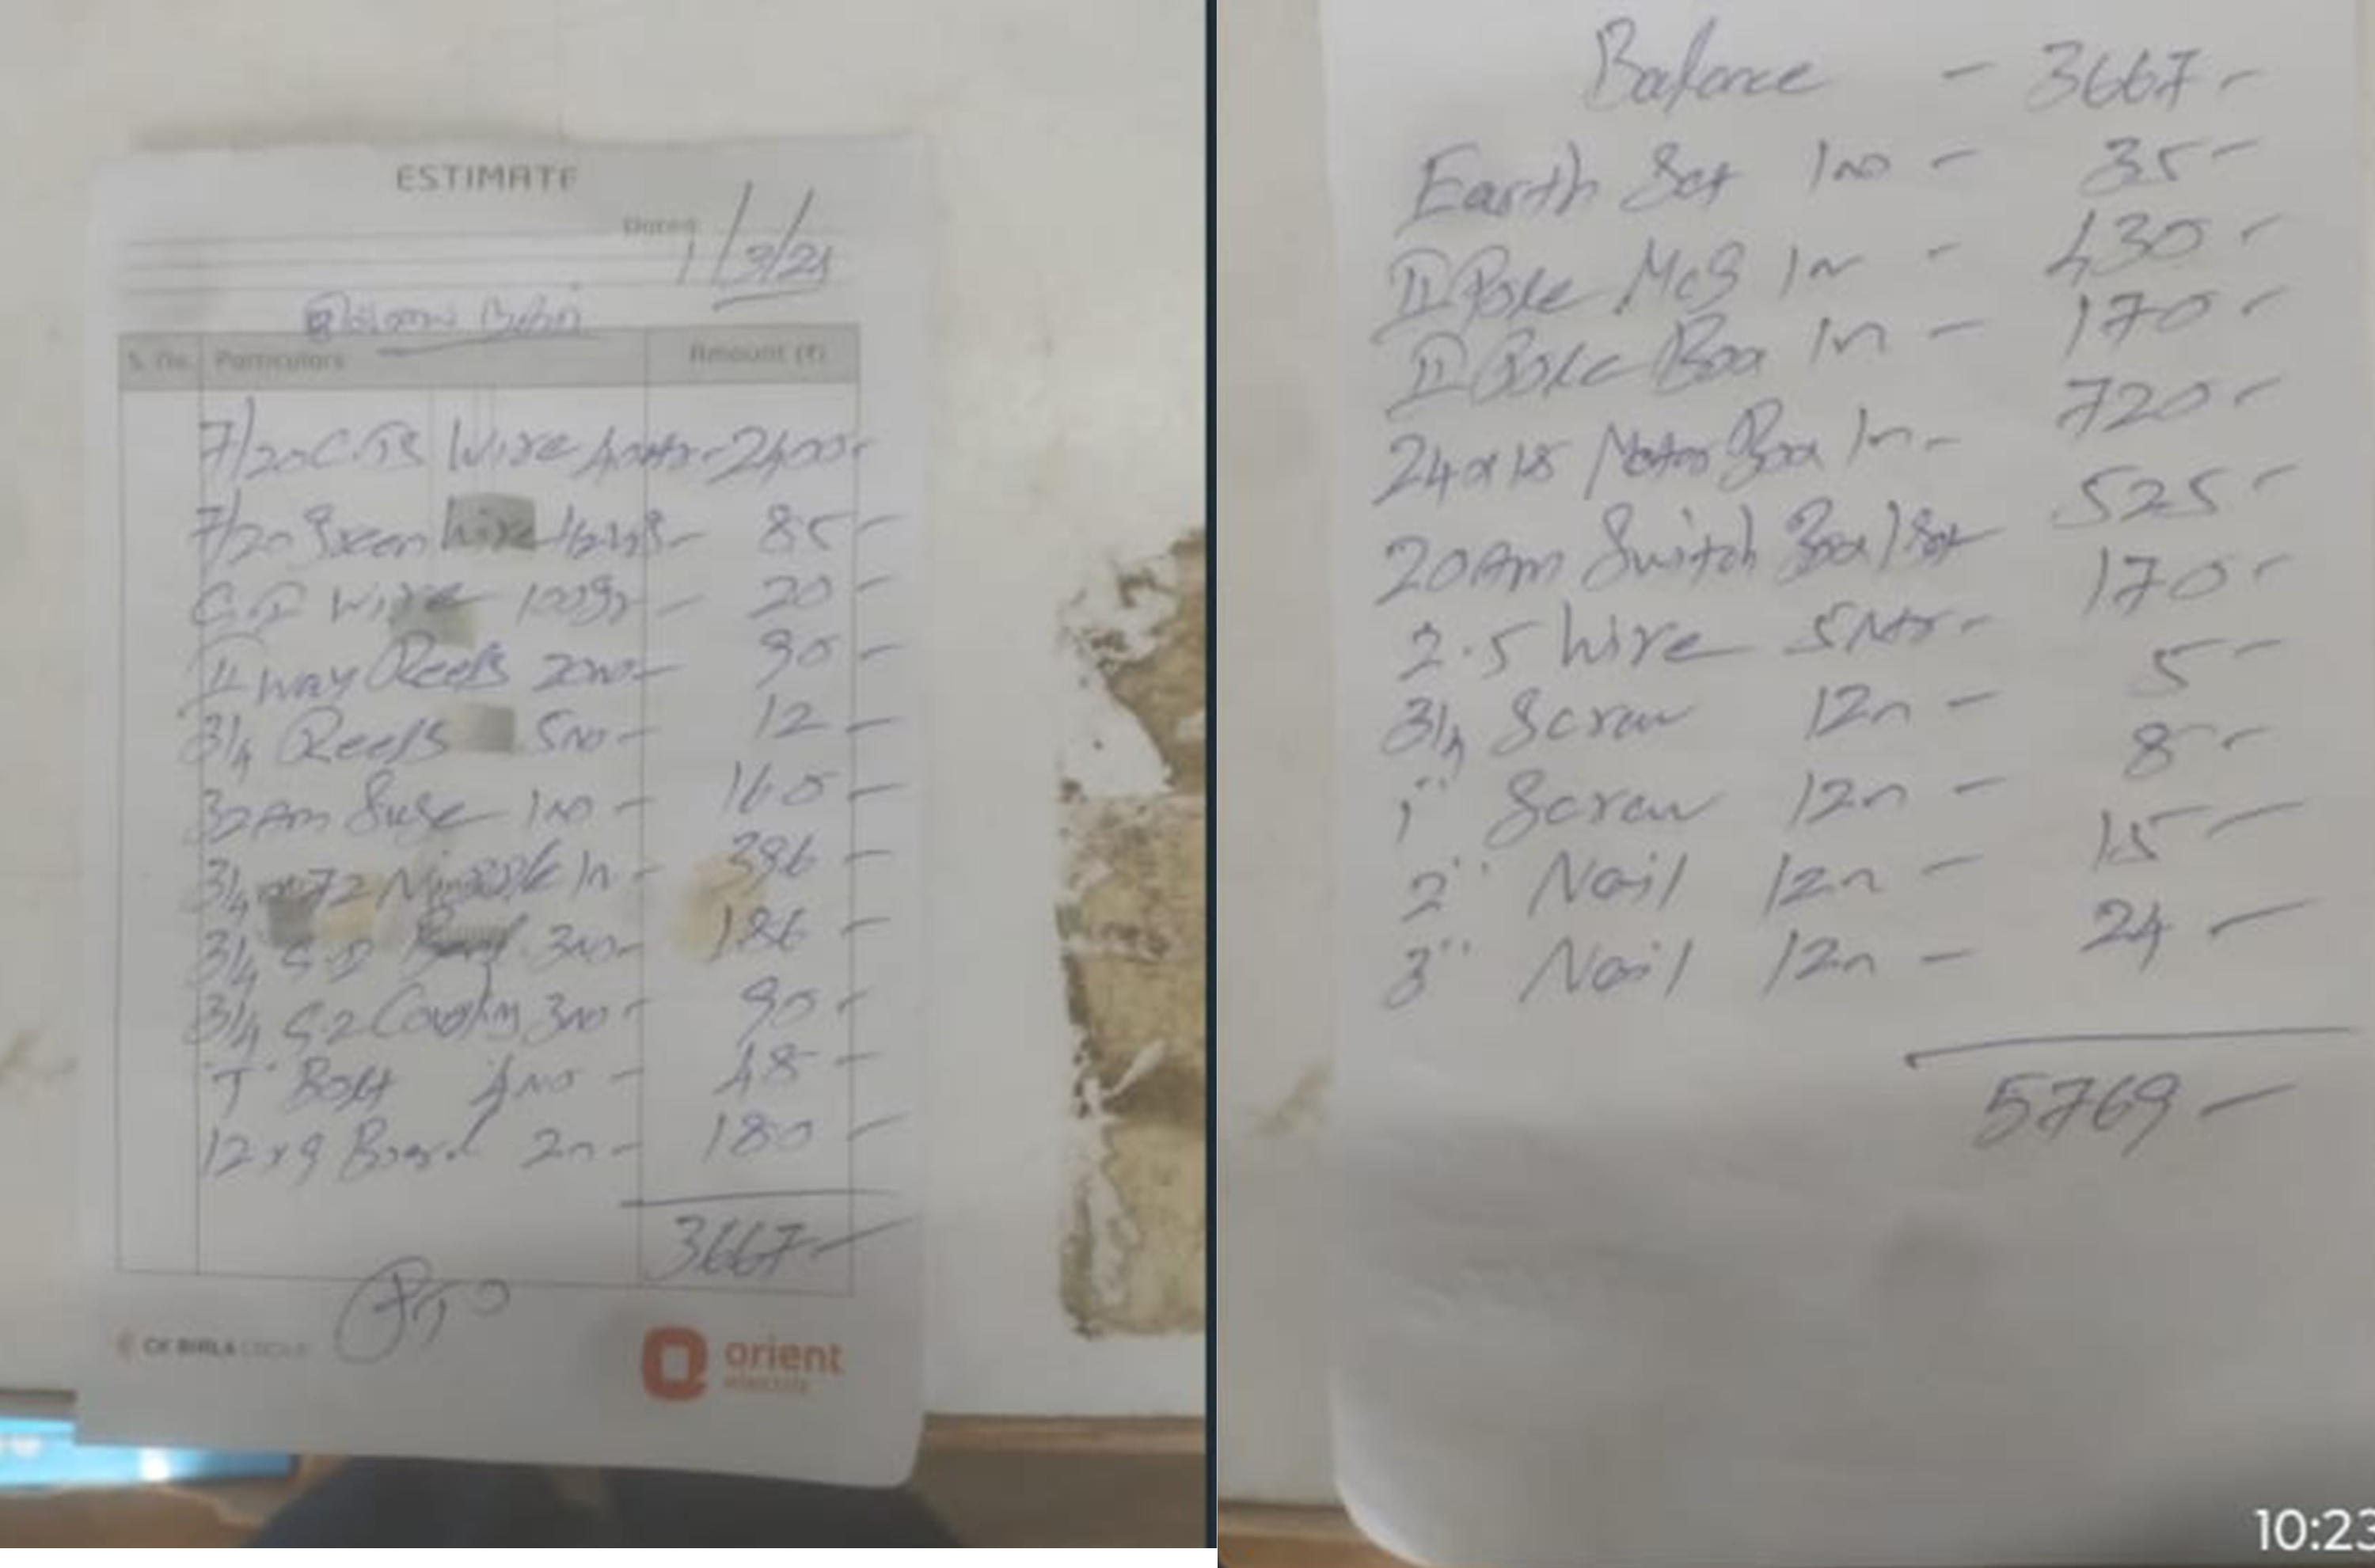 ESTIMATE
Dated
1/3/21
S. No. Particulars Amount (₹)
7/20 Wire 2400-
7/20 Green wire 85-
G.I Wire 100gr - 20-
II Way Reels 20no- 90-
3/4 Reels 5no- 12-
32Am Fuse 1no - 160-
3/4 72 1n - 396
3/4 Bend 3no- 186-
3/4 Coupling 3no- 90-
"T" Bolt 4no - 48-
12x9 Board 2n- 180-
3667-
PTO
CK BIRLA GROUP
orient
electric
Balance - 3667-
Earth Set 1no - 35-
II Pole 1n - 430-
II Pole Box 1n - 170-
24x18 Box 1n- 720-
20Am Switch Box 1Set 525-
2.5 Wire 5Mtr- 170-
3/4 Screw 12n - 5-
1" Screw 12n - 8-
2" Nail 12n - 15-
3" Nail 12n - 24-
5769-
10:23